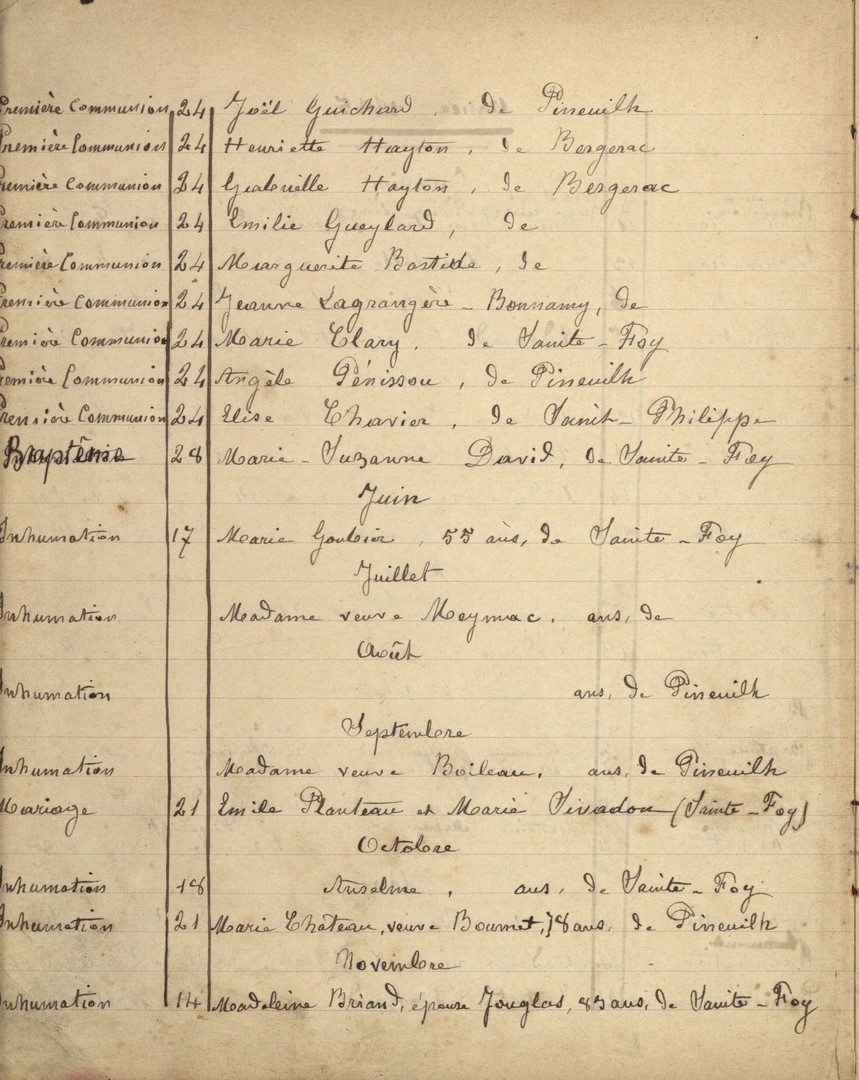 Première Communion 24 Joël Guichard, de Pineuilh
Première Communion 24 Henriette Hayton, de Bergerac
Première Communion 24 Gabrielle Hayton, de Bergerac
Première Communion 24 Emilie Gueylard, de
Première Communion 24 Marguerite Bastide, de
Première Communion 24 Jeanne Lagrangère - Bonnamy, de
Première Communion 24 Marie Clary, de Sainte - Foy
Première Communion 24 Angèle Pénissou, de Pineuilh
Première Communion 24 Elise Chavier, de Saint - Philippe
Baptême 28 Marie - Suzanne David, de Sainte - Foy
Juin
Inhumation 17 Marie Goubier, 55 ans, de Sainte - Foy
Juillet
Inhumation Madame veuve Meymac, ans, de
Août
Inhumation ans, de Pineuilh
Septembre
Inhumation Madame veuve Boileau, ans, de Pineuilh
Mariage 21 Emile Planteau et Marie Sivadon (Sainte - Foy)
Octobre
Inhumation 18 Anselme, ans, de Sainte - Foy
Inhumation 21 Marie Château, veuve Bournet, 78 ans, de Pineuilh
Novembre
Inhumation 14 Madeleine Briand, épouse Jouglas, 83 ans, de Sainte - Foy